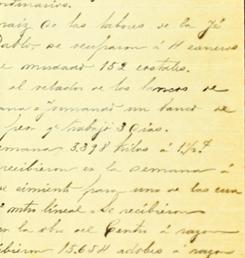 ordinarios.
raiz de las labores de la Sé
Pablo, se ocuparon á 4 caneros
e mudado 152 costales.
el relator de los bancos de
ana y formando un banco de
peso y trabajó 3 dias.
semana 3.398 kilos á 1½ ¢
recibieron en la semana á
de cimiento para uno de las cua
2 mtro lineal. Se recibieron
en la obra del Centro á razon
cibieron 15.654 adobes á razon